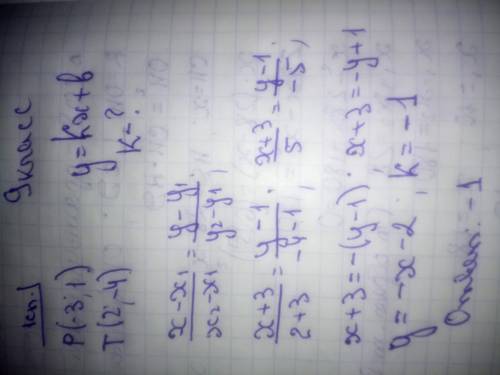 1сп.) 9 класс
P(-3; 1) y = kx + b
T(2; -4) k - ?
x - x₁ / x₂ - x₁ = y - y₁ / y₂ - y₁ ;
x + 3 / 2 + 3 = y - 1 / -4 - 1 ; x + 3 / 5 = y - 1 / -5 ;
x + 3 = -(y - 1) ; x + 3 = -y + 1
y = -x - 2 , k = -1
Ответ: -1